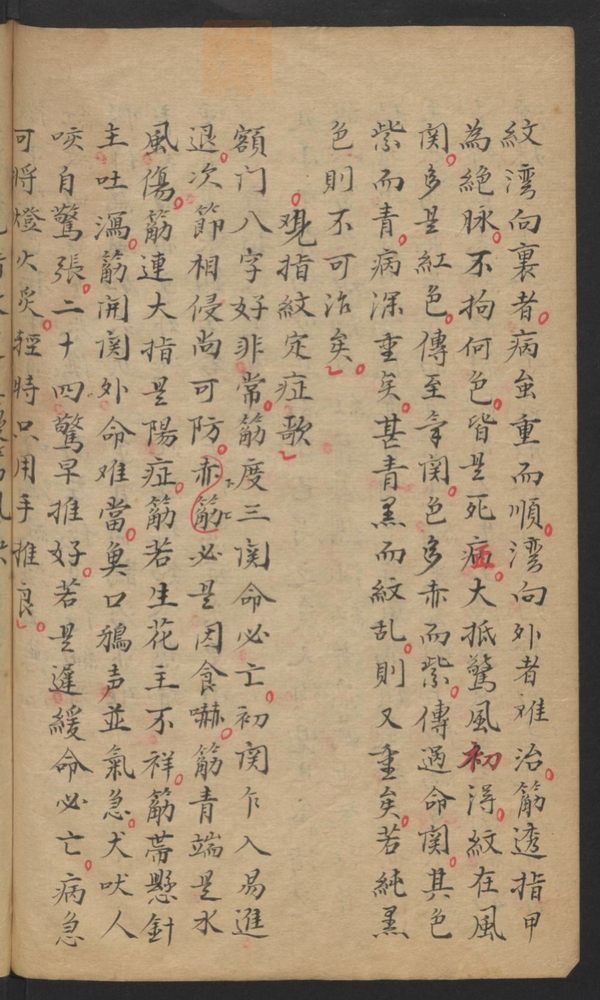 紋灣向裏者。病虽重而順。灣向外者难治。筋透指甲
為絕脉。不拘何色。皆是死症。大抵驚風初淂。紋在風
関。多是紅色。傳至氣関。色多赤而紫。傳過命関。其色
紫而青。病深重矣。甚青黑而紋乱。則又重矣。若純黑
色則不可治矣。
。观指紋定症歌
額门八字好非常。筋度三関命必亡。初関乍入易進
退。次節相侵尚可防。赤筋必是因食嚇。筋青端是水
風傷。筋連大指是陽症。筋若生花主不祥。筋帶懸針
主吐瀉。筋開関外命难當。奐口鵶声並氣急。犬吠人
咬自驚張。二十四驚早推好。若是遲緩命必亡。病急
可将燈火灸。輕時只用手推良。